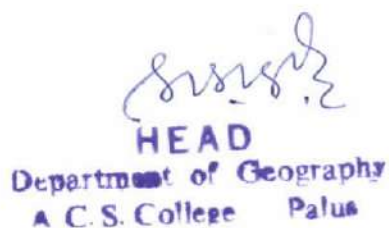 HEAD
Department of Geography
A C. S. College Palus